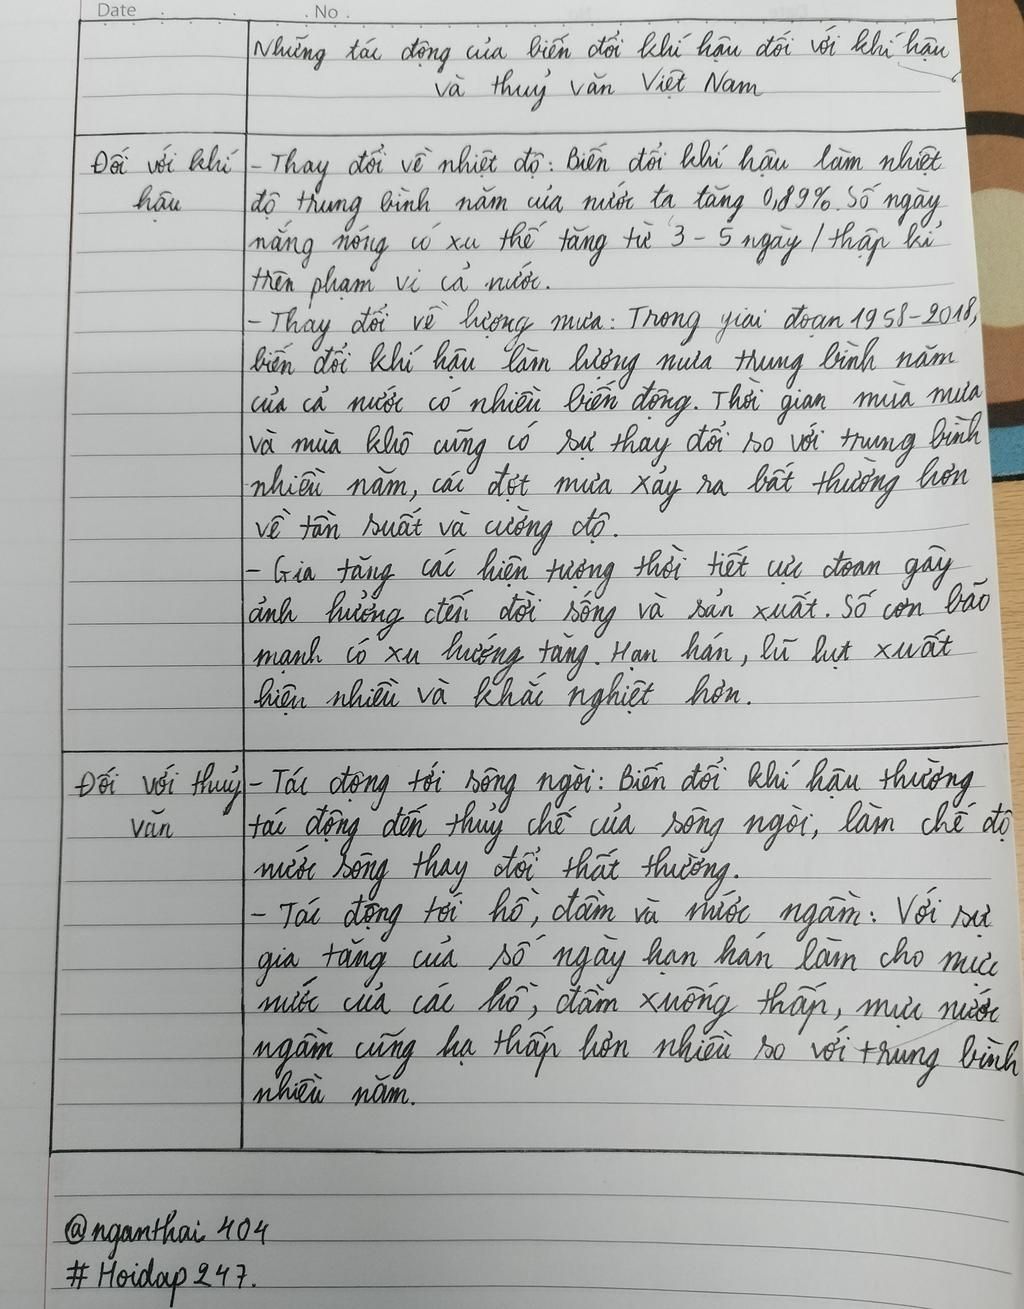 Date No.
Những tác động của biến đổi khí hậu đối với khí hậu
và thuỷ văn Việt Nam
Đối với khí
hậu
- Thay đổi về nhiệt độ: Biến đổi khí hậu làm nhiệt
độ trung bình năm của nước ta tăng 0,89%. Số ngày
nắng nóng có xu thế tăng từ 3 - 5 ngày / thập kỉ
trên phạm vi cả nước.
- Thay đổi về lượng mưa: Trong giai đoạn 1958-2018,
biến đổi khí hậu làm lượng mưa trung bình năm
của cả nước có nhiều biến động. Thời gian mùa mưa
và mùa khô cũng có sự thay đổi so với trung bình
nhiều năm, các đợt mưa xảy ra bất thường hơn
về tần suất và cường độ.
- Gia tăng các hiện tượng thời tiết cực đoan gây
ảnh hưởng đến đời sống và sản xuất. Số cơn bão
mạnh có xu hướng tăng. Hạn hán, lũ lụt xuất
hiện nhiều và khắc nghiệt hơn.
Đối với thuỷ
văn
- Tác động tới sông ngòi: Biến đổi khí hậu thường
tác động đến thuỷ chế của sông ngòi, làm chế độ
nước sông thay đổi thất thường.
- Tác động tới hồ, đầm và nước ngầm: Với sự
gia tăng của số ngày hạn hán làm cho mực
nước của các hồ, đầm xuống thấp, mực nước
ngầm cũng hạ thấp hơn nhiều so với trung bình
nhiều năm.
@nganthai 404
# Hoidap 247.